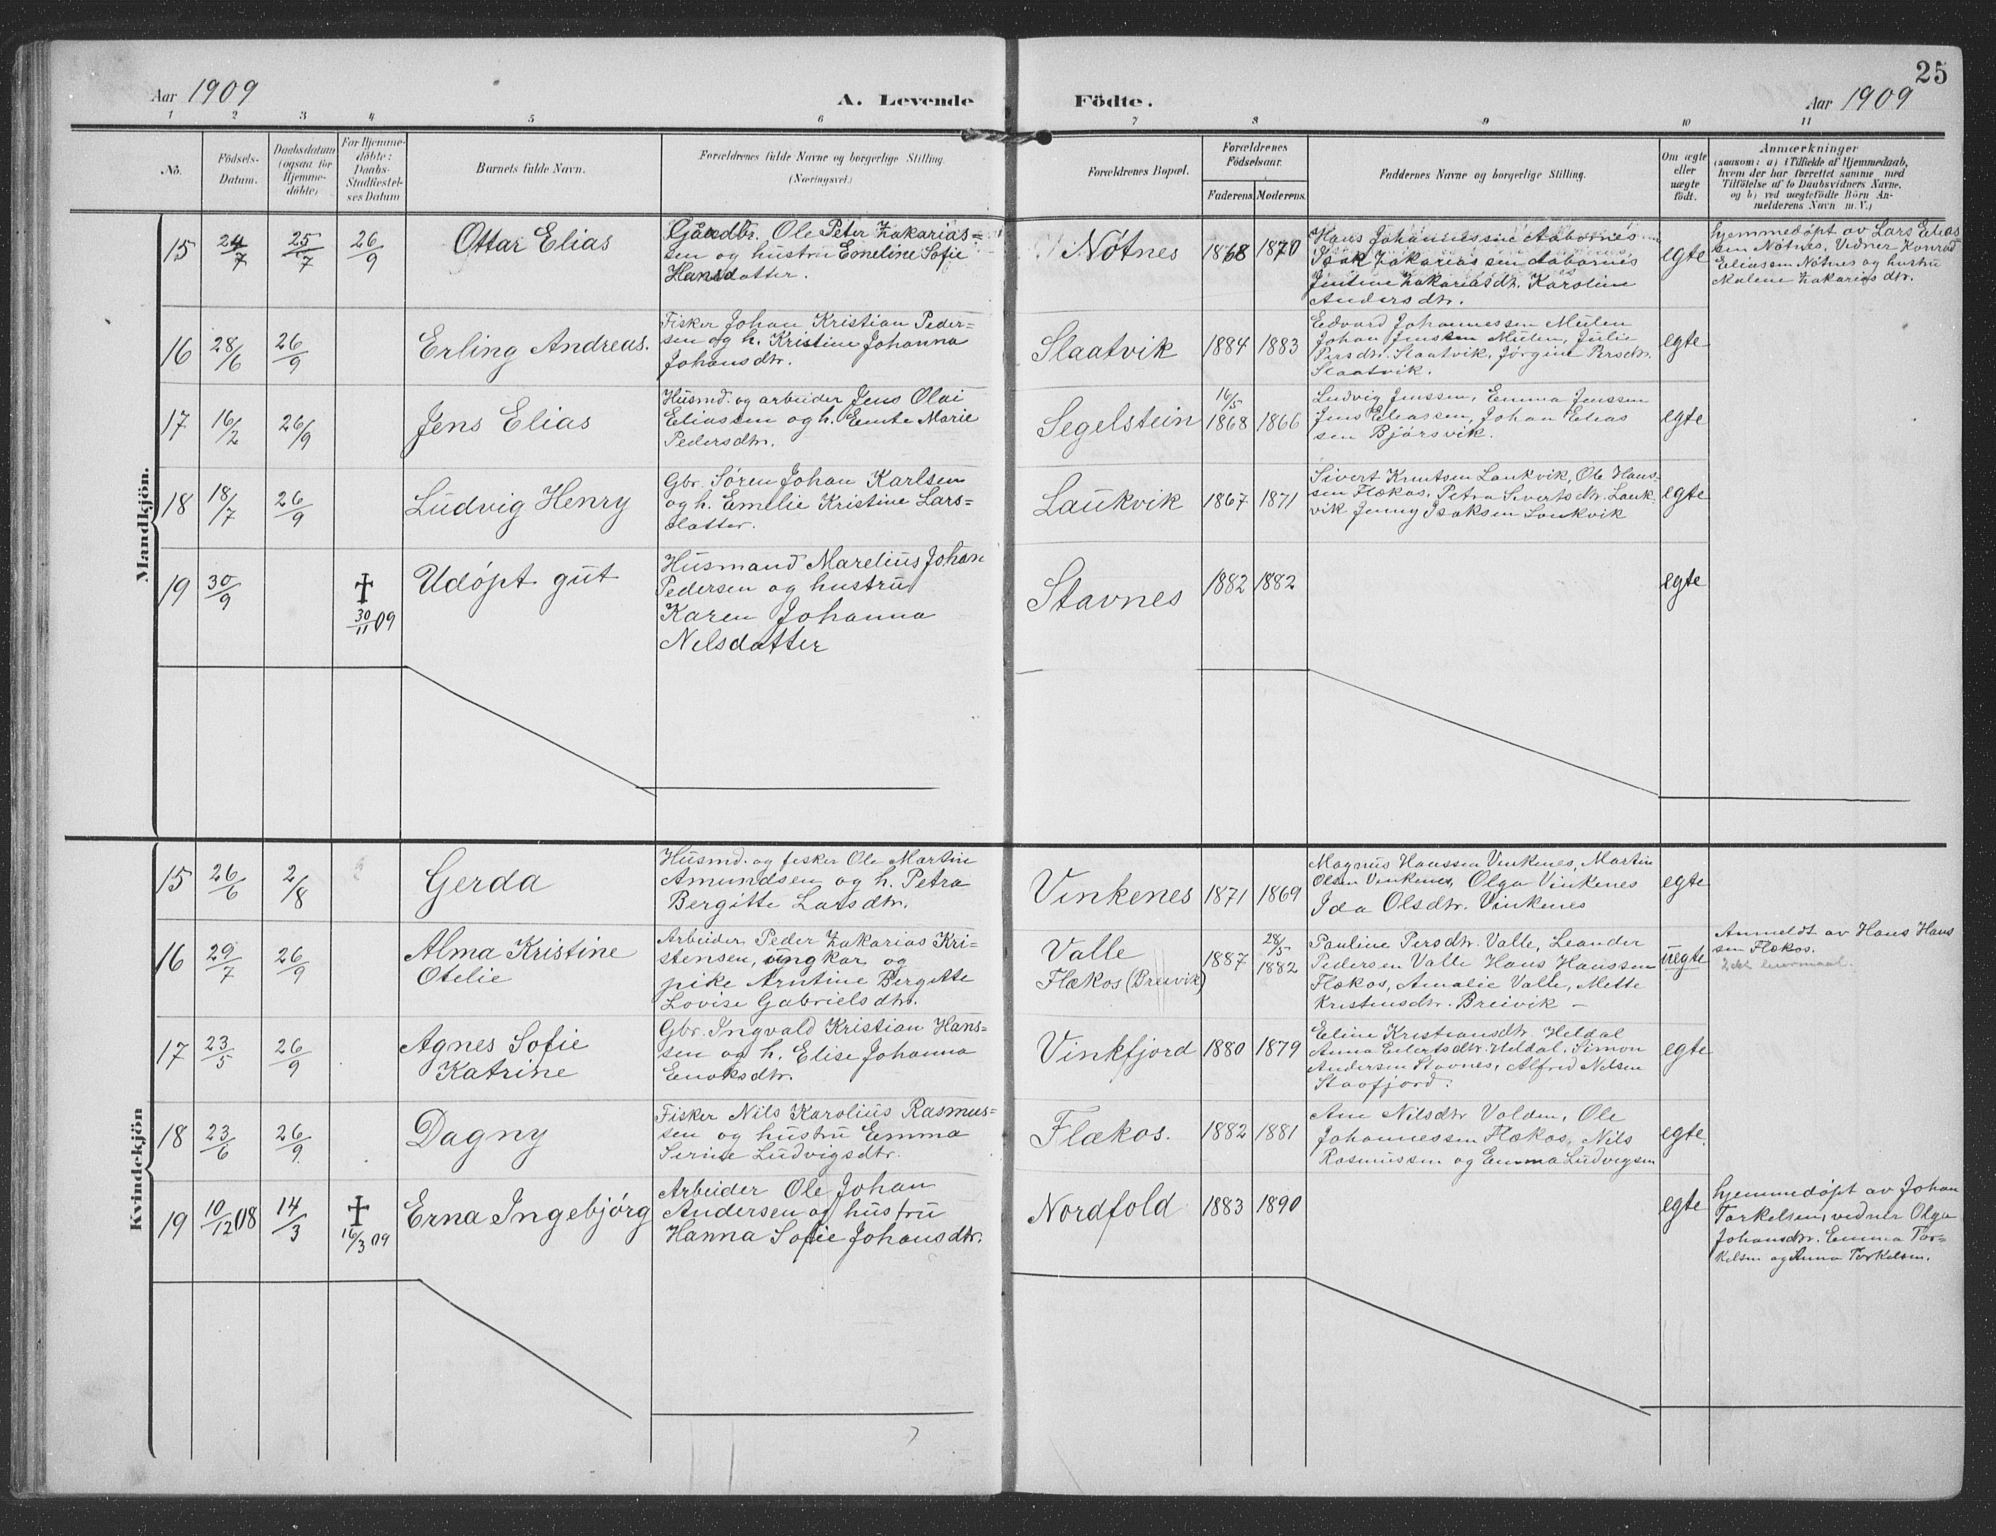 25
Aar 1909
A. Levende Födte.
Aar 1909
1 2 3 4 5 6 7 8 9 10 11
No.
Födsels-
Datum.
Daabsdatum
(ogsaa for
Hjemme-
döbte)
For Hjemme-
döbte:
Daabs-
Stadfæstel-
ses Datum
Barnets fulde Navn.
Forældrenes fulde Navne og borgerlige Stilling.
(Næringsvei.)
Forældrenes Bopæl.
Forældrenes
Födselsaar.
Faderens
Moderens
Faddernes Navne og borgerlige Stilling.
Om ægte
eller
uægte
født.
Anmærkninger
(saasom: a) i Tilfælde af Hjemmedaab,
hvem der har forrettet samme med
Tilföielse af to Daabsvidners Navne,
og b) ved uægtefödte Börn An-
melderens Navn m. V.)
Mandkjön.
15
24/7
25/7
26/9
Ottar Elias
Gaardbr. Ole Peter Zakarias-
sen og hustru Emeline Sofie
Hansdatter.
Nøtnes
1868
1870
Hans Johannessen Aabotnes
Isak Zakariassen Aabotnes
Jentine Zakariasdt. Karoline
Andersdtr.
egte
hjemmedøpt av Lars Elias
sen Nøtnes, Vidner Konrad
Eliassen Nøtnes og hustru
Malene Zakariasdtr.
16
28/6
26/9
Erling Andreas.
Fisker Johan Kristian Peder-
sen og h. Kristine Johanna
Johansdtr.
Slaatvik
1884
1883
Edvard Johannessen Mulen
Johan Jenssen Mulen, Julie
Persdtr. Slaatvik, Jørgine Persdtr.
Slaatvik.
egte
17
16/2
26/9
Jens Elias
Husmd. og arbeider Jens Olai
Eliassen og h. Emte Marie
Pedersdtr.
Segelstein
16/5
1868
1866
Ludvig Jenssen, Emma Jenssen
Jens Eliassen, Johan Elias
sen Bjørsvik.
egte
18
18/7
26/9
Ludvig Henry
Gbr. Søren Johan Karlsen
og h. Emelie Kristine Lars-
datter.
Laukvik
1867
1871
Sivert Knutsen Laukvik, Ole Hans-
sen Flækos, Petra Sivertsdtr. Lauk-
vik Jenny Isaksen Laukvik
egte
19
30/9
† 30/11 09
Udøpt gut
Husmand Marelius Johan
Pedersen og hustru
Karen Johanna
Nilsdatter
Stavnes
1882
1882
egte
Kvindekjön
15
26/6
2/8
Gerda
Husmd. og fisker Ole Martin
Amundsen og h. Petra
Bergitte Larsdtr.
Vinkenes
1871
1869
Magnus Hanssen Vinkenes, Martin
Olsen Vinkenes, Olga Vinkenes
Ida Olsdtr. Vinkenes
egte
16
29/7
26/9
Alma Kristine
Otelie
Arbeider Peder Zakarias Kri-
stensen, ungkar og
pike Arntine Bergitte
Lovise Gabrielsdtr.
Valle
Flækos (Breivik)
1887
28/5
1882
Pauline Persdtr. Valle, Leander
Pedersen Valle Hans Hanssen
Flækos, Amalie Valle, Mette
Kristensdtr. Breivik –
uegte
Anmeldt av Hans Hans
sen Flækos.
17
23/5
26/9
Agnes Sofie
Katrine
Gbr. Ingvald Kristian Hans-
sen og h. Elise Johanna
Enoksdtr.
Vinkfjord
1880
1879
Eline Kristiansdtr. Heldal
Anna Eilertsdtr. Heldal. Simon
Andersen Stavnes, Alfred Nilsen
Stavfjord.
egte
18
23/6
26/9
Dagny
Fisker Nils Karolius Rasmus-
sen og hustru Emma
Serine Ludvigsdtr.
Flækos.
1882
1881
Ane Nilsdtr Valden, Ole
Johannessen Flækos, Nils
Rasmussen og Emma Ludvigsen
egte.
19
10/12 08
14/3
† 16/3 09
Erna Ingebjørg
Arbeider Ole Johan
Andersen og hustru
Hanna Sofie Johansdtr.
Nordfold
1883
1890
egte
hjemmedøpt av Johan
Torkelsen, vidner Olga
Johansdtr. Emma Tor-
kelsen og Anna Torkelsen.